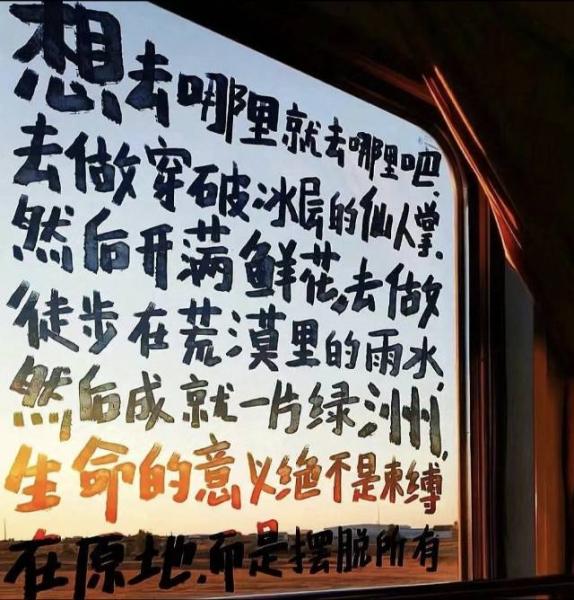 想去哪里就去哪里吧、
去做穿破冰层的仙人掌、
然后开满鲜花、去做
徒步在荒漠里的雨水,
然后成就一片绿洲,
生命的意义绝不是束缚
在原地,而是摆脱所有